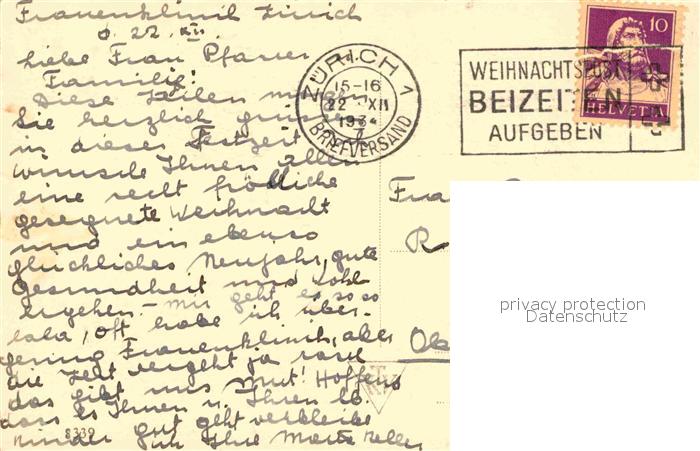 Frauenklinik Zürich
d. 22. XII.
Liebe Frau Pfarrer
Familie!
Diese Zeilen
Sie herzlich
in dieser Festzeit
wünsche Ihnen allen
eine recht fröhliche
gesegnete Weihnacht
und ein ebenso
glückliches Neujahr, gute
Gesundheit und Wohl
ergehen. - mir geht es so so
lala, oft habe ich über-
genug Frauenklinik, aber
die Zeit vergeht ja rasch
das gibt uns Mut! Hoffend
dass es Ihnen u. Ihren lb.
Kinder gut geht verbleibe
Ihre Keller
8339
ZÜRICH 1
15-16
22. XII
1934
7
BRIEFVERSAND
WEIHNACHTSPOST
BEIZEITEN
AUFGEBEN
10
HELVETIA
Frau
R
privacy protection
Datenschutz